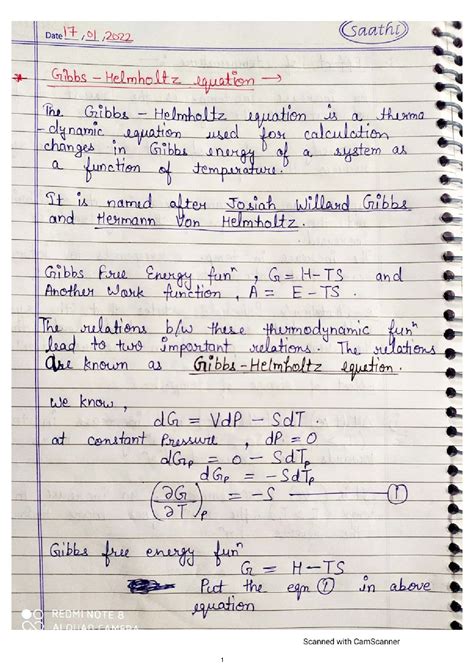 Date 17,01,2022
Saathi
* Gibbs - Helmholtz equation →
The Gibbs - Helmholtz equation is a thermo
-dynamic equation used for calculation
changes in Gibbs energy of a system as
a function of temperature.
It is named after Josiah Willard Gibbs
and Hermann Von Helmholtz.
Gibbs free Energy funⁿ, G = H-TS and
Another Work function, A = E - TS.
The relations b/w these thermodynamic funⁿ
lead to two important relations. The relations
are known as Gibbs-Helmholtz equetion.
We know,
dG = VdP - SdT.
at constant Pressure, dP = 0
dGₚ = 0 - SdTₚ
dGₚ = -SdTₚ
(∂G/∂T)ₚ = -S —— ①
Gibbs free energy funⁿ
G = H-TS
Put the eqn ① in above
equation
REDMI NOTE 8
AI QUAD CAMERA
Scanned with CamScanner
1